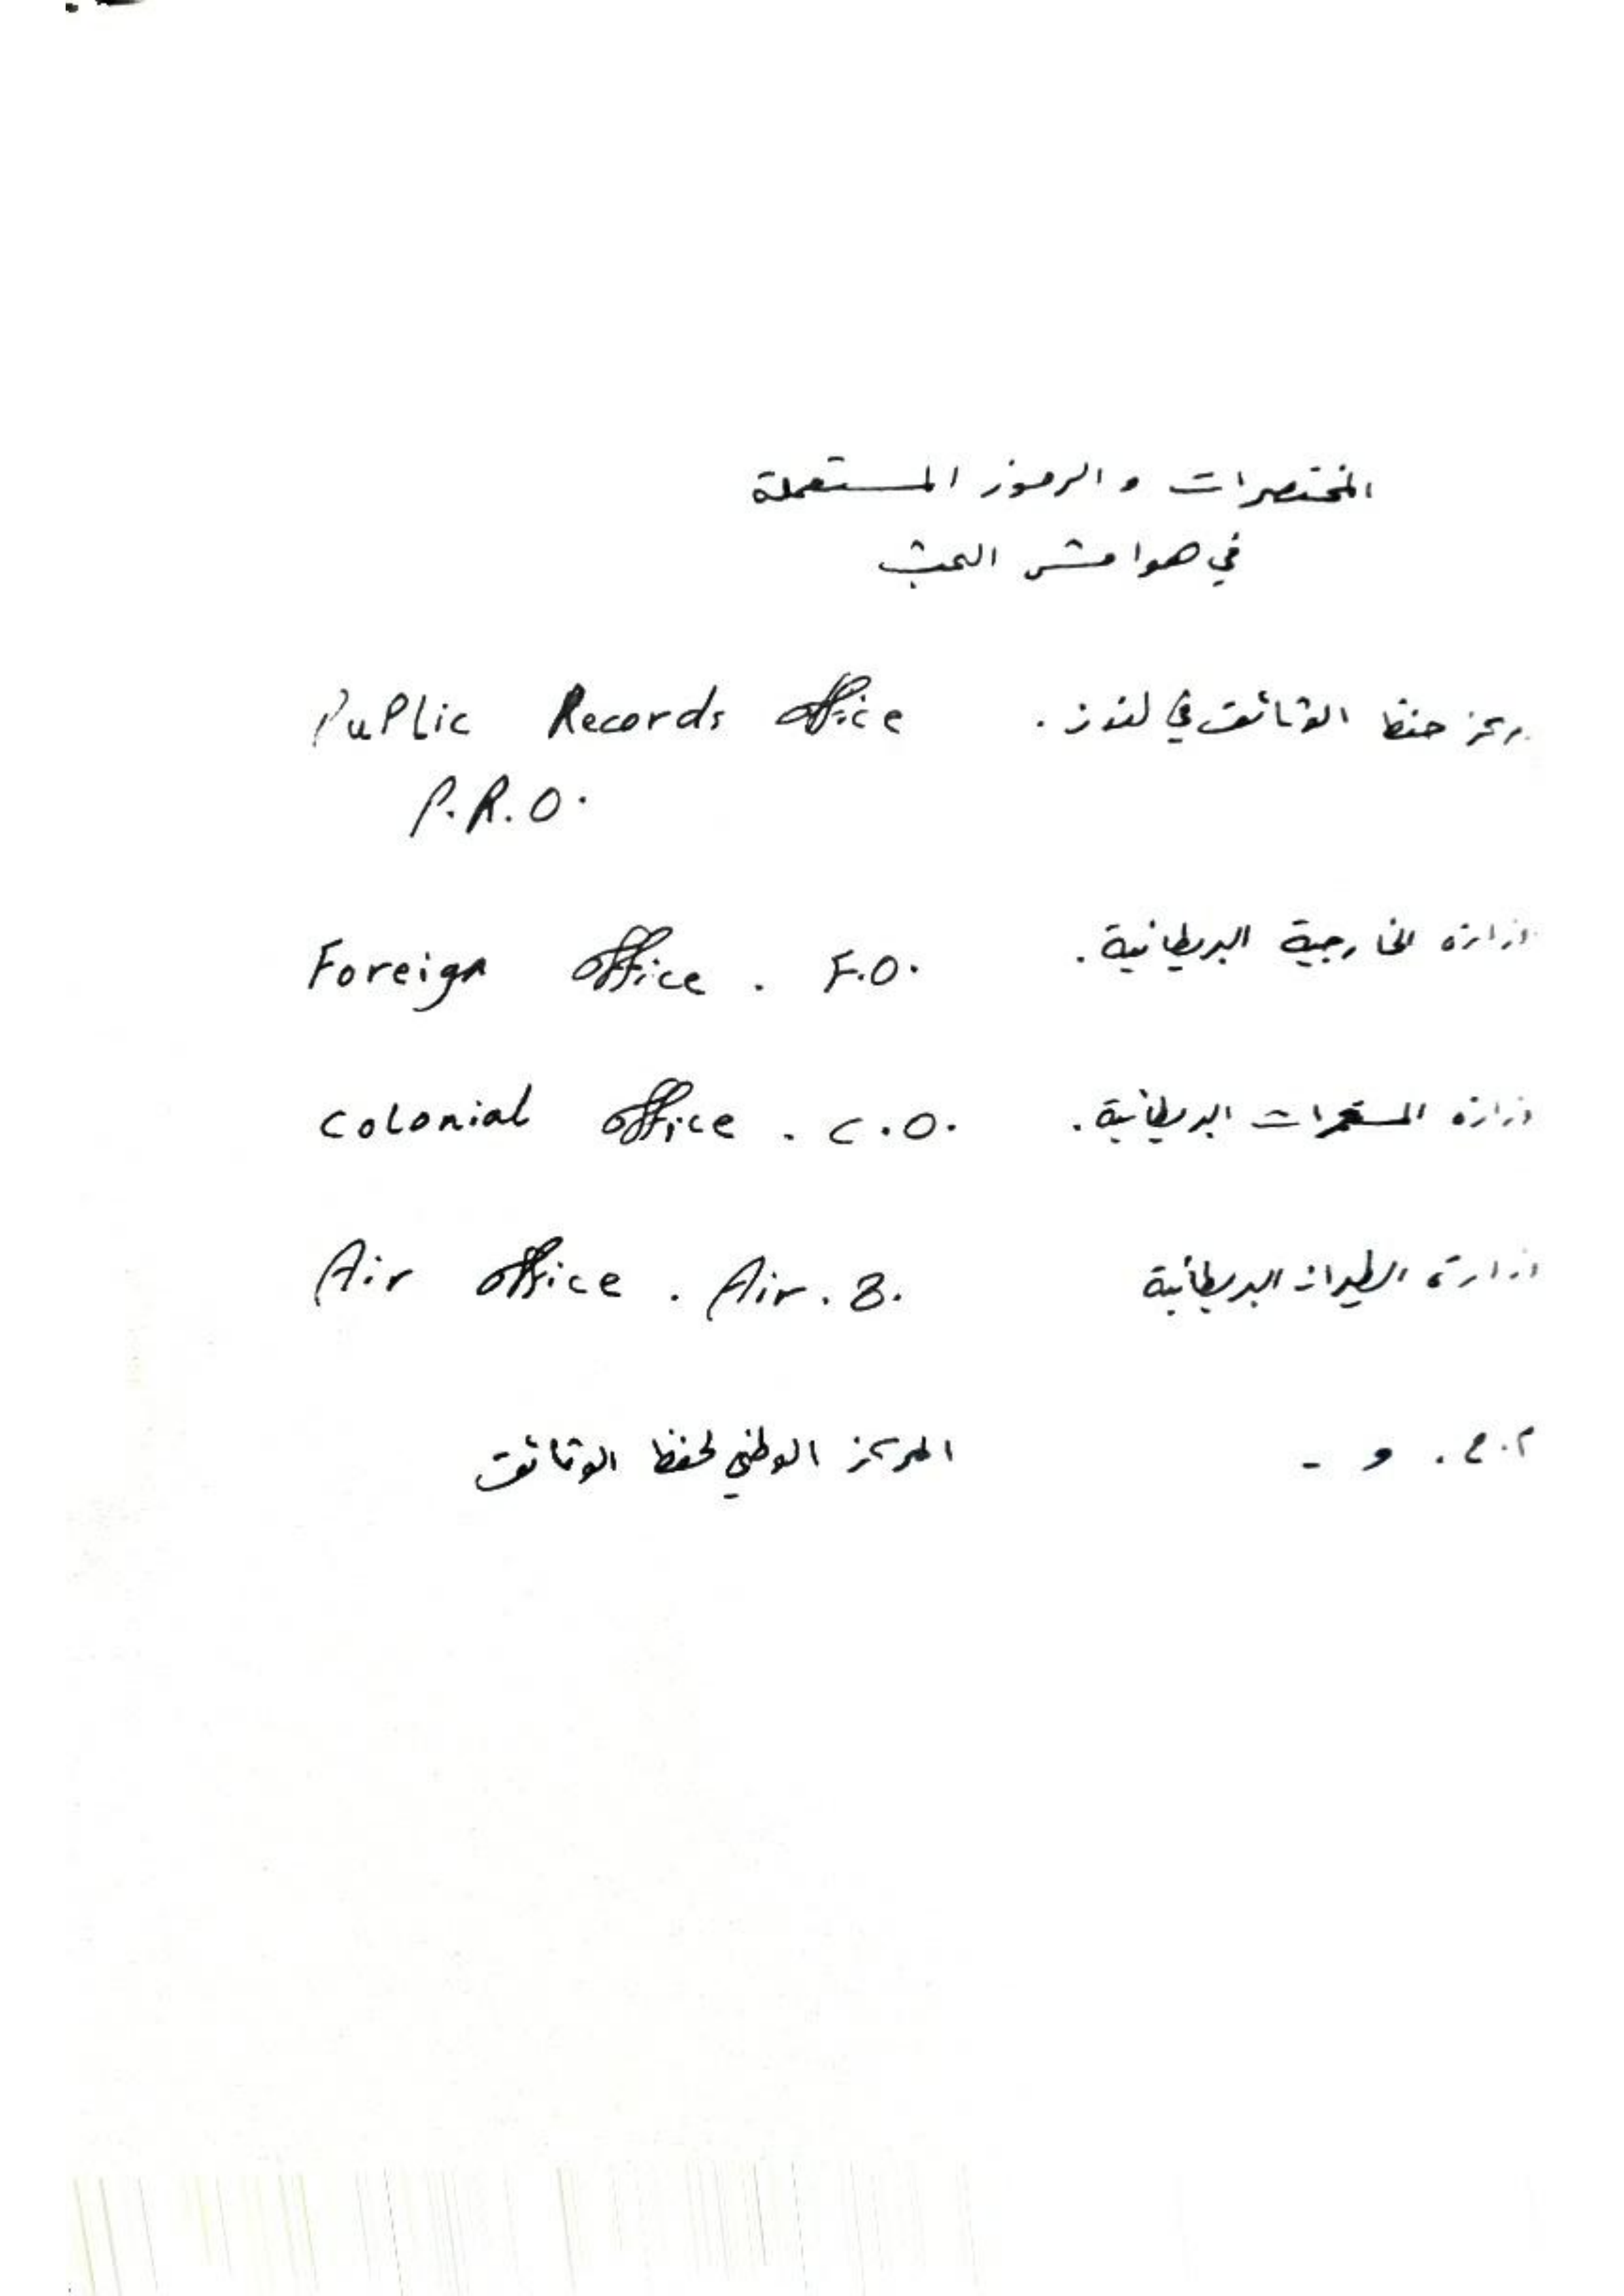 المختصرات والرموز المستعملة
في هوامش البحث
مركز حفظ الوثائق في لندن . Puplic Records office
P.R.O.
وزارة الخارجية البريطانية . Foreign office . F.O.
وزارة المستعمرات البريطانية . colonial office . C.O.
وزارة الطيران البريطانية Air office . Air . 8.
م . ح . و - المركز الوطني لحفظ الوثائق